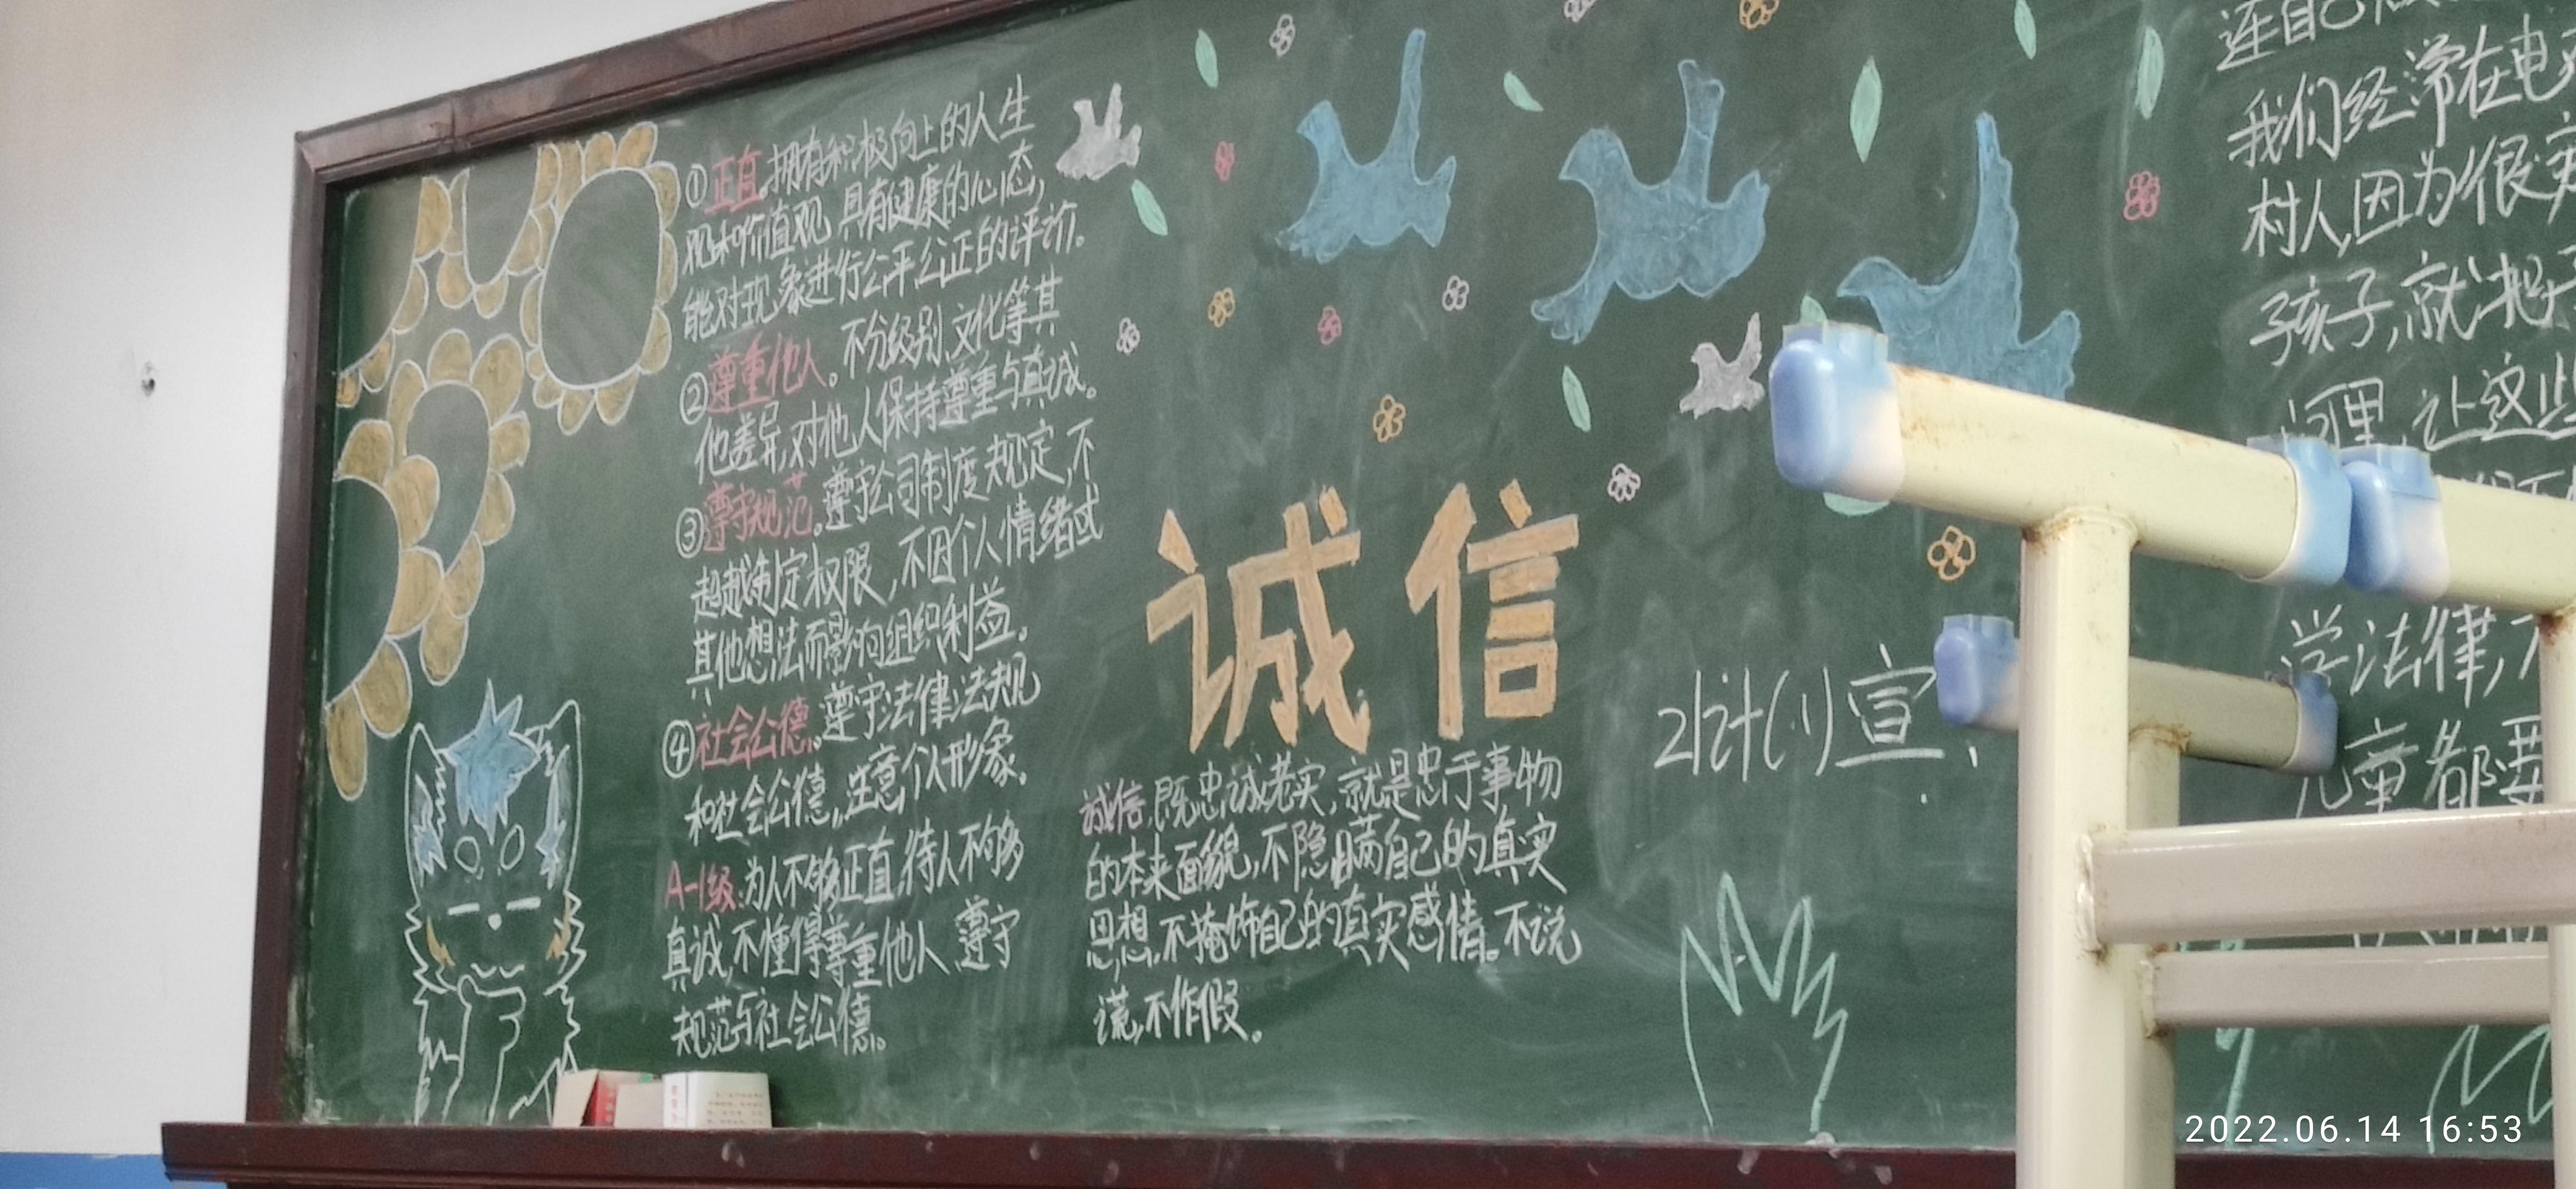 ①正直。拥有积极向上的人生
观和价值观,具有健康的心态,
能对现象进行公平公正的评价。
②尊重他人。不分级别、文化等其
他差异,对他人保持尊重与真诚。
③遵守规范。遵守公司制度规定,不
超越制定权限,不因个人情绪或
其他想法而影响组织利益。
④社会公德。遵守法律法规
和社会公德,注意个人形象。
A-1级:为人不够正直,待人不够
真诚,不懂得尊重他人、遵守
规范与社会公德。
诚信
诚信,既忠诚老实,就是忠于事物
的本来面貌,不隐瞒自己的真实
思想,不掩饰自己的真实感情。不说
谎,不作假。
21计(1)宣
连自己
我们经常在电
村人,因为很
孩子,就把
里,让这些
学法律,
儿童都要
2022.06.14 16:53